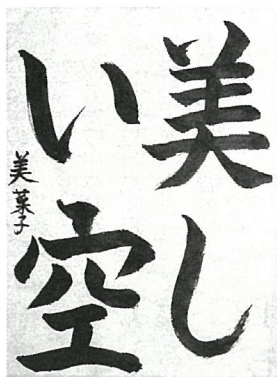 美し
い空
美菜子